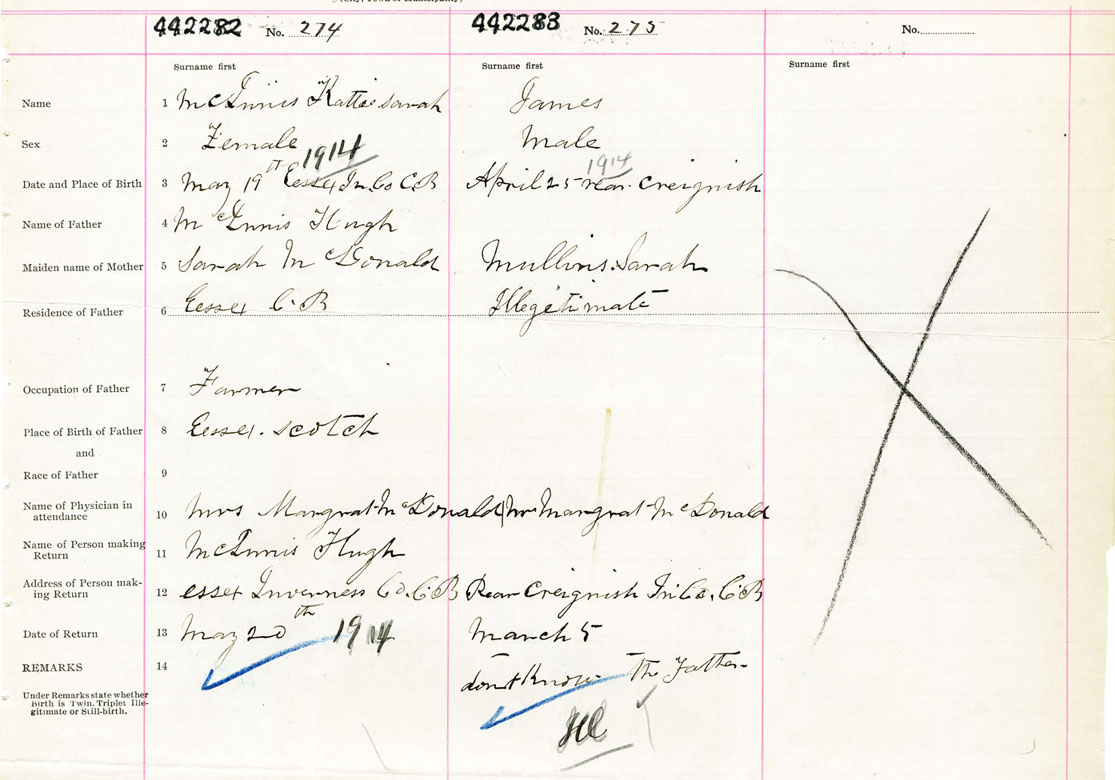 442282 No. 274 442283 No. 275 No.
Surname first Surname first Surname first
Name 1 McInnis Katie Sarah James
Sex 2 Female Male
1914 1914
Date and Place of Birth 3 May 19th Essex In. Co C.B April 25 rear Creignish
Name of Father 4 McInnis Hugh
Maiden name of Mother 5 Sarah McDonald Mullins. Sarah
Residence of Father 6 Essex C.B Illegetimate
Occupation of Father 7 Farmer
Place of Birth of Father 8 Essex. scotch
and
Race of Father 9
Name of Physician in
attendance 10 Mrs Margrat McDonald Mrs Margrat McDonald
Name of Person making
Return 11 McInnis Hugh
Address of Person mak-
ing Return 12 essex Inverness Co. C.B Rear Creignish In. Co. C.B
Date of Return 13 May 20th 1914 March 5
REMARKS 14 don't Know the Father
Under Remarks state whether
Birth is Twin, Triplet Ille-
gitimate or Still-birth.